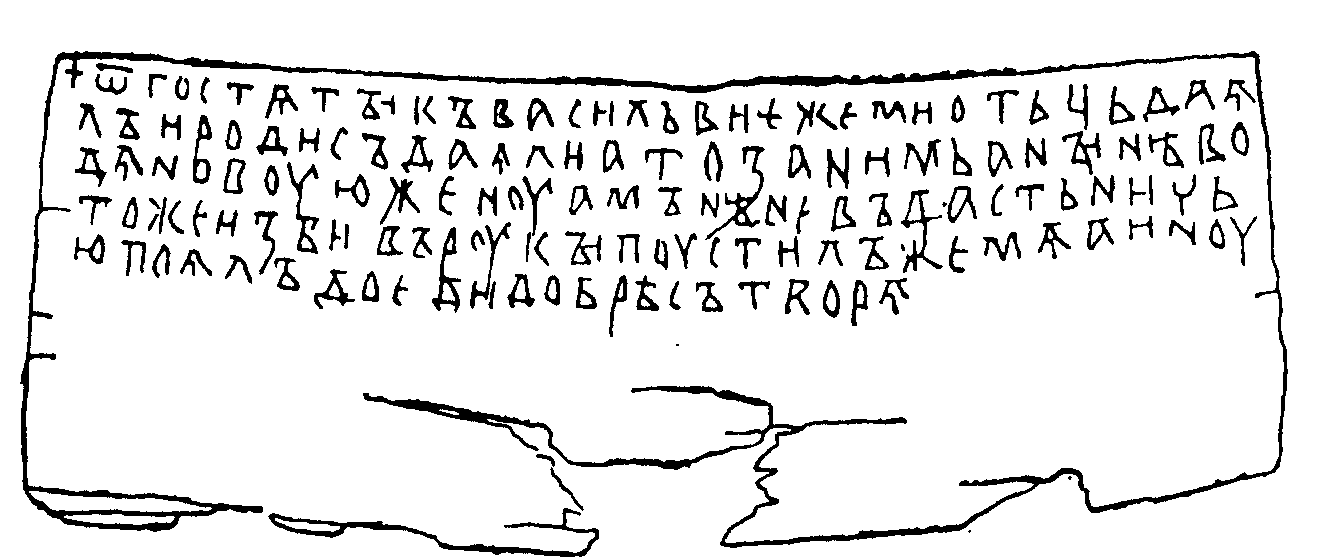 +ѿгостѧтꙑкъвасильвиѥжемиотьць даѧ
лъиродисъдаѧлиатозанимьанꙑнѣво
дѧновоуюженоуамънѣневъдастьничь
тожеизбивъроукꙑпоустилъжемѧаиноу
юпоѧлъдоедидобрѣсътворѧ